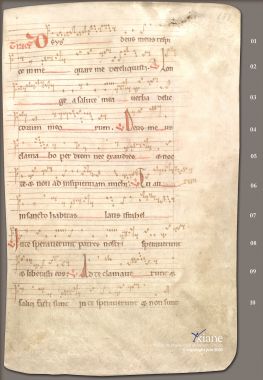 Tract D eus deus meus respi
ce in me quare me dereliquisti. Lon
ge a salute mea verba delic
torum meo rum. Deus me us
clama bo per diem nec exaudies & noc
te & non ad insipientiam michi. Tu au
in sancto habitas laus israhel
In te speraverunt patres nostri speraverunt
& liberasti eos. Ad te clamave runt &
salvi facti sunt in te speraverunt & non sunt
01
02
03
04
05
06
07
08
09
10
xiane